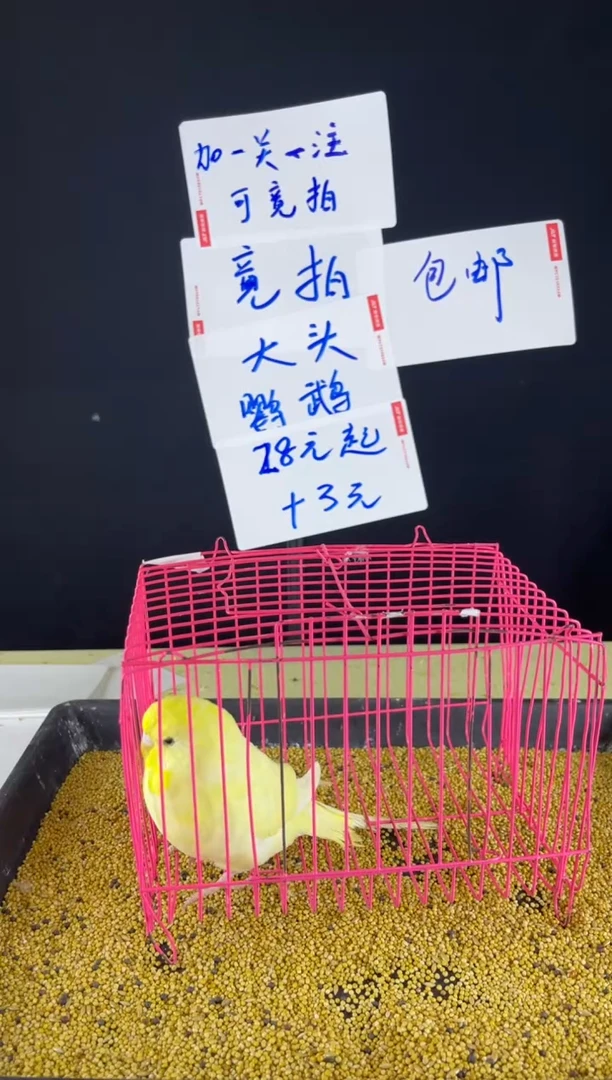 加一关一注
可竟拍
竟拍
包邮
大头
鹦鹉
28元起
+3元